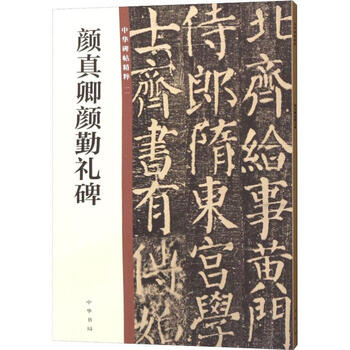 颜真卿颜勤礼碑
中华碑帖精粹
中华书局
北齊給事黄門
侍郎隋東宫學
士齊書有傳始